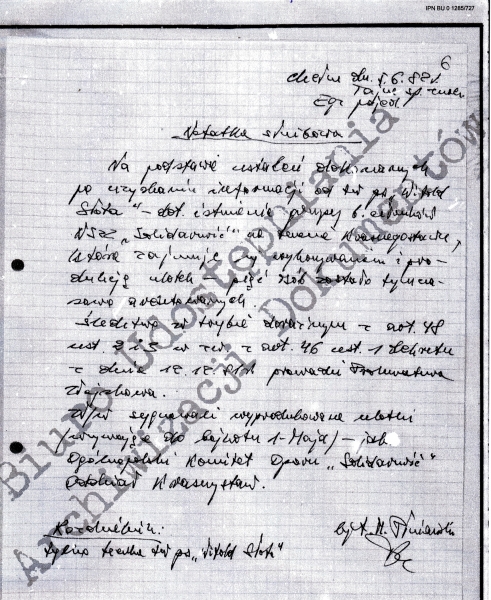 IPN BU 0 1285/727
6
Chełm dn. 8.6.82 r.
Tajne sp. znacz.
Egz. pojed.
Notatka służbowa
Na podstawie ustaleń dokonanych
po uzyskaniu informacji od tw ps. "Witold
Stota" – dot. istnienia grupy b. członków
NSZZ "Solidarność" na terenie Krasnegostawu,
która zajmuje się wykonywaniem i pro-
dukcją ulotek – pięć osób zostało tymcza-
sowo aresztowanych.
Śledztwo w trybie doraźnym z art. 48
ust. 2 i 5 w zw. z art. 46 ust. 1 dekretu
z dnia 12.12.81 r. prowadzi Prokuratura
Wojskowa.
W/w sygnowali wyprodukowane ulotki
/wzywające do bojkotu 1-Maja/ – jako
Ogólnopolski Komitet Oporu "Solidarność"
Oddział Krasnystaw.
Rozdzielnik:
teczka tw ps. "Witold Stota"
Biuro Udostępniania
i Archiwizacji Dokumentów